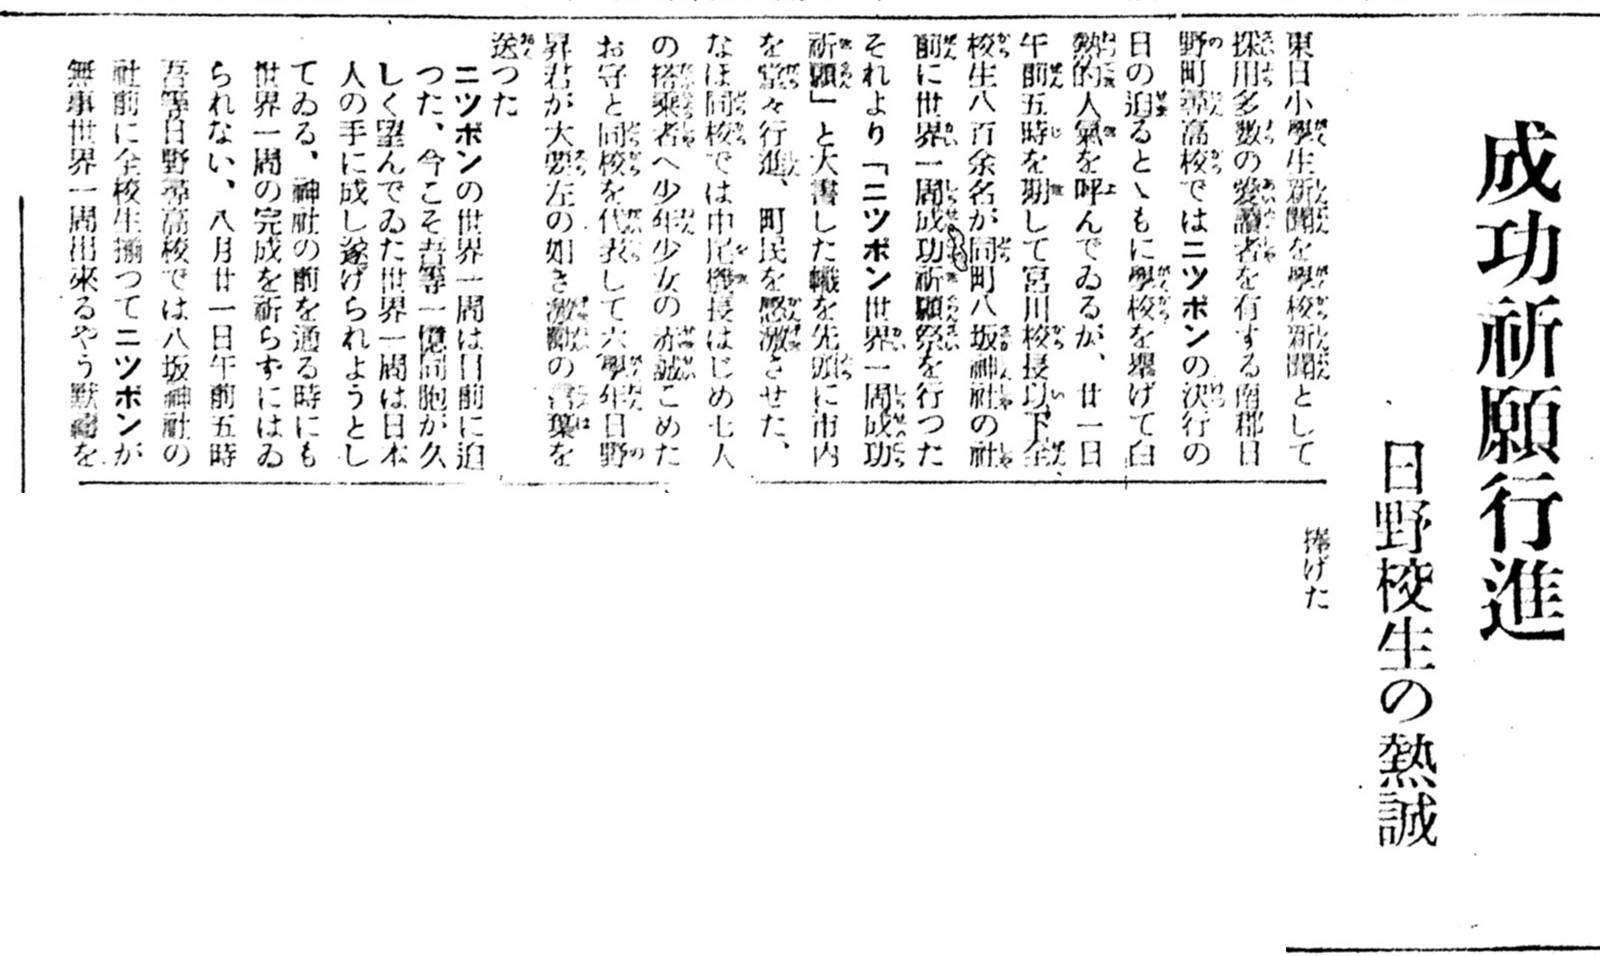 成功祈願行進
日野校生の熱誠
東日小學生新聞を學校新聞として
採用多數の愛讀者を有する南郡日
野町尋高校ではニツポンの決行の
日の迫るとゝもに學校を擧げて白
熱的人氣を呼んでゐるが、廿一日
午前五時を期して宮川校長以下全
校生八百余名が同町八坂神社の社
前に世界一周成功祈願祭を行つた
それより「ニツポン世界一周成功
祈願」と大書した幟を先頭に市内
を堂々行進、町民を感激させた、
なほ同校では中尾機長はじめ七人
の搭乘者へ少年少女の赤誠こめた
お守と同校を代表して六學年日野
昇君が大要左の如き激勵の言葉を
送つた
ニツポンの世界一周は目前に迫
つた、今こそ吾等一億同胞が久
しく望んでゐた世界一周は日本
人の手に成し遂げられようとし
てゐる、神社の前を通る時にも
世界一周の完成を祈らずにはゐ
られない、八月廿一日午前五時
吾等日野尋高校では八坂神社の
社前に全校生揃つてニツポンが
無事世界一周出來るやう默禱を
捧げた